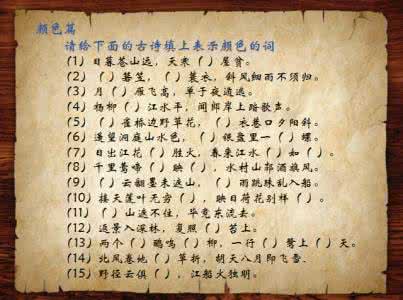 颜色篇
请给下面的古诗填上表示颜色的词
(1) 日暮苍山远，天寒（ ）屋贫。
(2) （ ）箬笠，（ ）蓑衣，斜风细雨不须归。
(3) 月（ ）雁飞高，单于夜遁逃。
(4) 杨柳（ ）江水平，闻郎岸上踏歌声。
(5) （ ）雀桥边野草花，（ ）衣巷口夕阳斜。
(6) 遥望洞庭山水色，（ ）银盘里一（ ）螺。
(7) 日出江花（ ）胜火，春来江水（ ）如（ ）。
(8) 千里莺啼（ ）映（ ），水村山郭酒旗风。
(9) （ ）云翻墨未遮山，（ ）雨跳珠乱入船。
(10) 接天莲叶无穷（ ），映日荷花别样（ ）。
(11) （ ）山遮不住，毕竟东流去。
(12) 返景入深林，复照（ ）苔上。
(13) 两个（ ）鹂鸣（ ）柳，一行（ ）鹭上（ ）天。
(14) 北风卷地（ ）草折，胡天八月即飞雪。
(15) 野径云俱（ ），江船火独明。